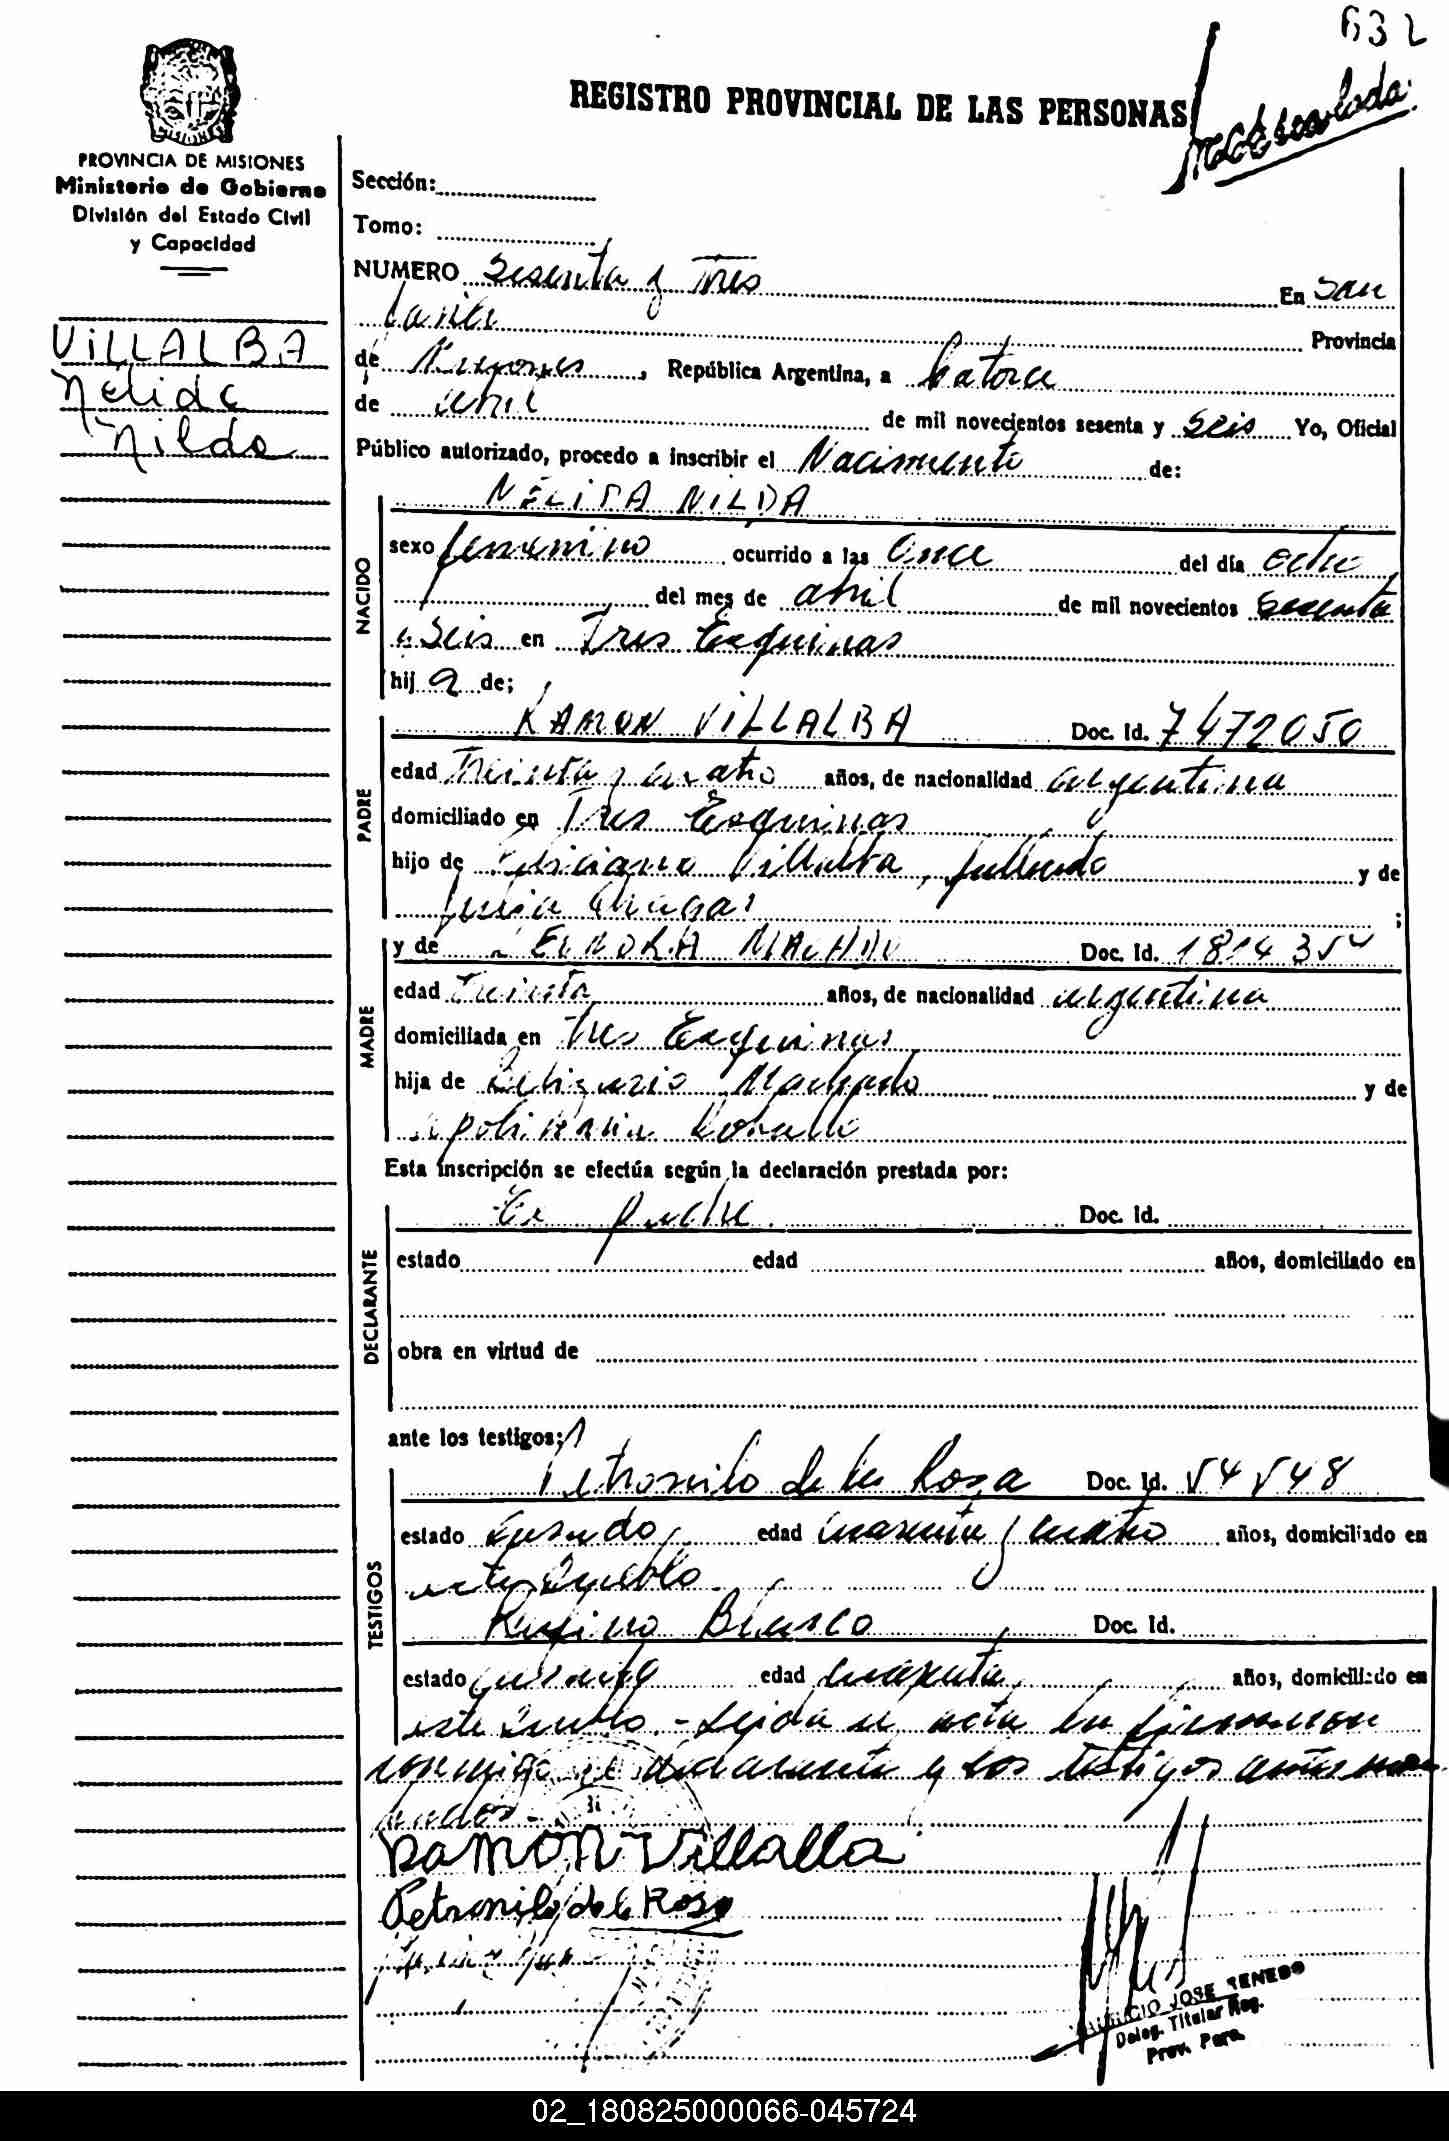 632
REGISTRO PROVINCIAL DE LAS PERSONAS
MISIONES
PROVINCIA DE MISIONES
Ministerio de Gobierno
División del Estado Civil
y Capacidad
VILLALBA
Nélida
Nilda
Sección:
Tomo:
NUMERO Sesenta y Tres En San
Javier Provincia
de Misiones, República Argentina, a Catorce
de abril de mil novecientos sesenta y Seis Yo, Oficial
Público autorizado, procedo a inscribir el Nacimiento de:
NACIDO
NÉLIDA NILDA
sexo femenino ocurrido a las Once del día ocho
del mes de abril de mil novecientos sesenta
y Seis en Tres Esquinas
hij a de;
PADRE
RAMON VILLALBA Doc. Id. 7472050
edad Treinta y cuatro años, de nacionalidad argentina
domiciliado en Tres Esquinas
hijo de Villalba, fallecido y de
Chagas ;
MADRE
y de LEONORA MACHADO Doc. Id.
edad Treinta años, de nacionalidad argentina
domiciliada en Tres Esquinas
hija de Machado y de
Esta inscripción se efectúa según la declaración prestada por:
DECLARANTE
El padre Doc. Id.
estado edad años, domiciliado en
obra en virtud de
ante los testigos;
TESTIGOS
Petronilo de la Rosa Doc. Id. 54548
estado casado edad cuarenta y cuatro años, domiciliado en
este Pueblo
Rufino Blasco Doc. Id.
estado casado edad cuarenta años, domiciliado en
este Pueblo.- Leida el acta la firmaron
conmigo el declarante y los testigos
RAMON Villalba
Petronilo de la Rosa
JOSE TENEDO
Deleg. Titular Reg.
Prov. Pers.
02_180825000066-045724